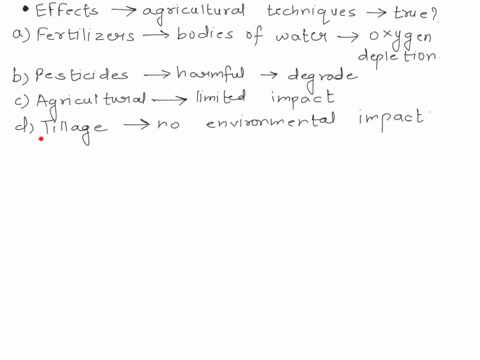 • Effects → agricultural techniques → true?
a) Fertilizers → bodies of water → oxygen
depletion.
b) Pesticides → harmful → degrade
c) Agricultural → limited impact
d) Tillage → no environmental impact.